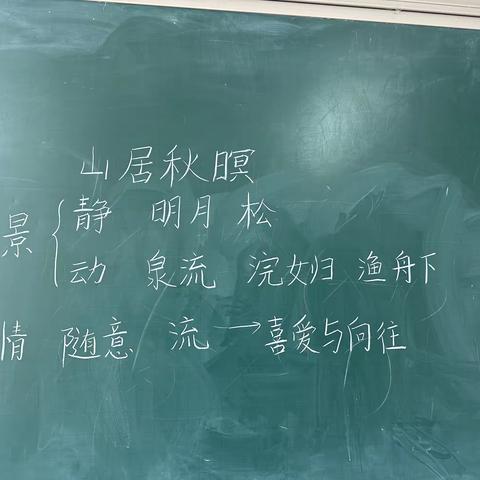 山居秋暝
景 { 静 明月 松
动 泉流 浣女归 渔舟下
情 随意 流 → 喜爱与向往